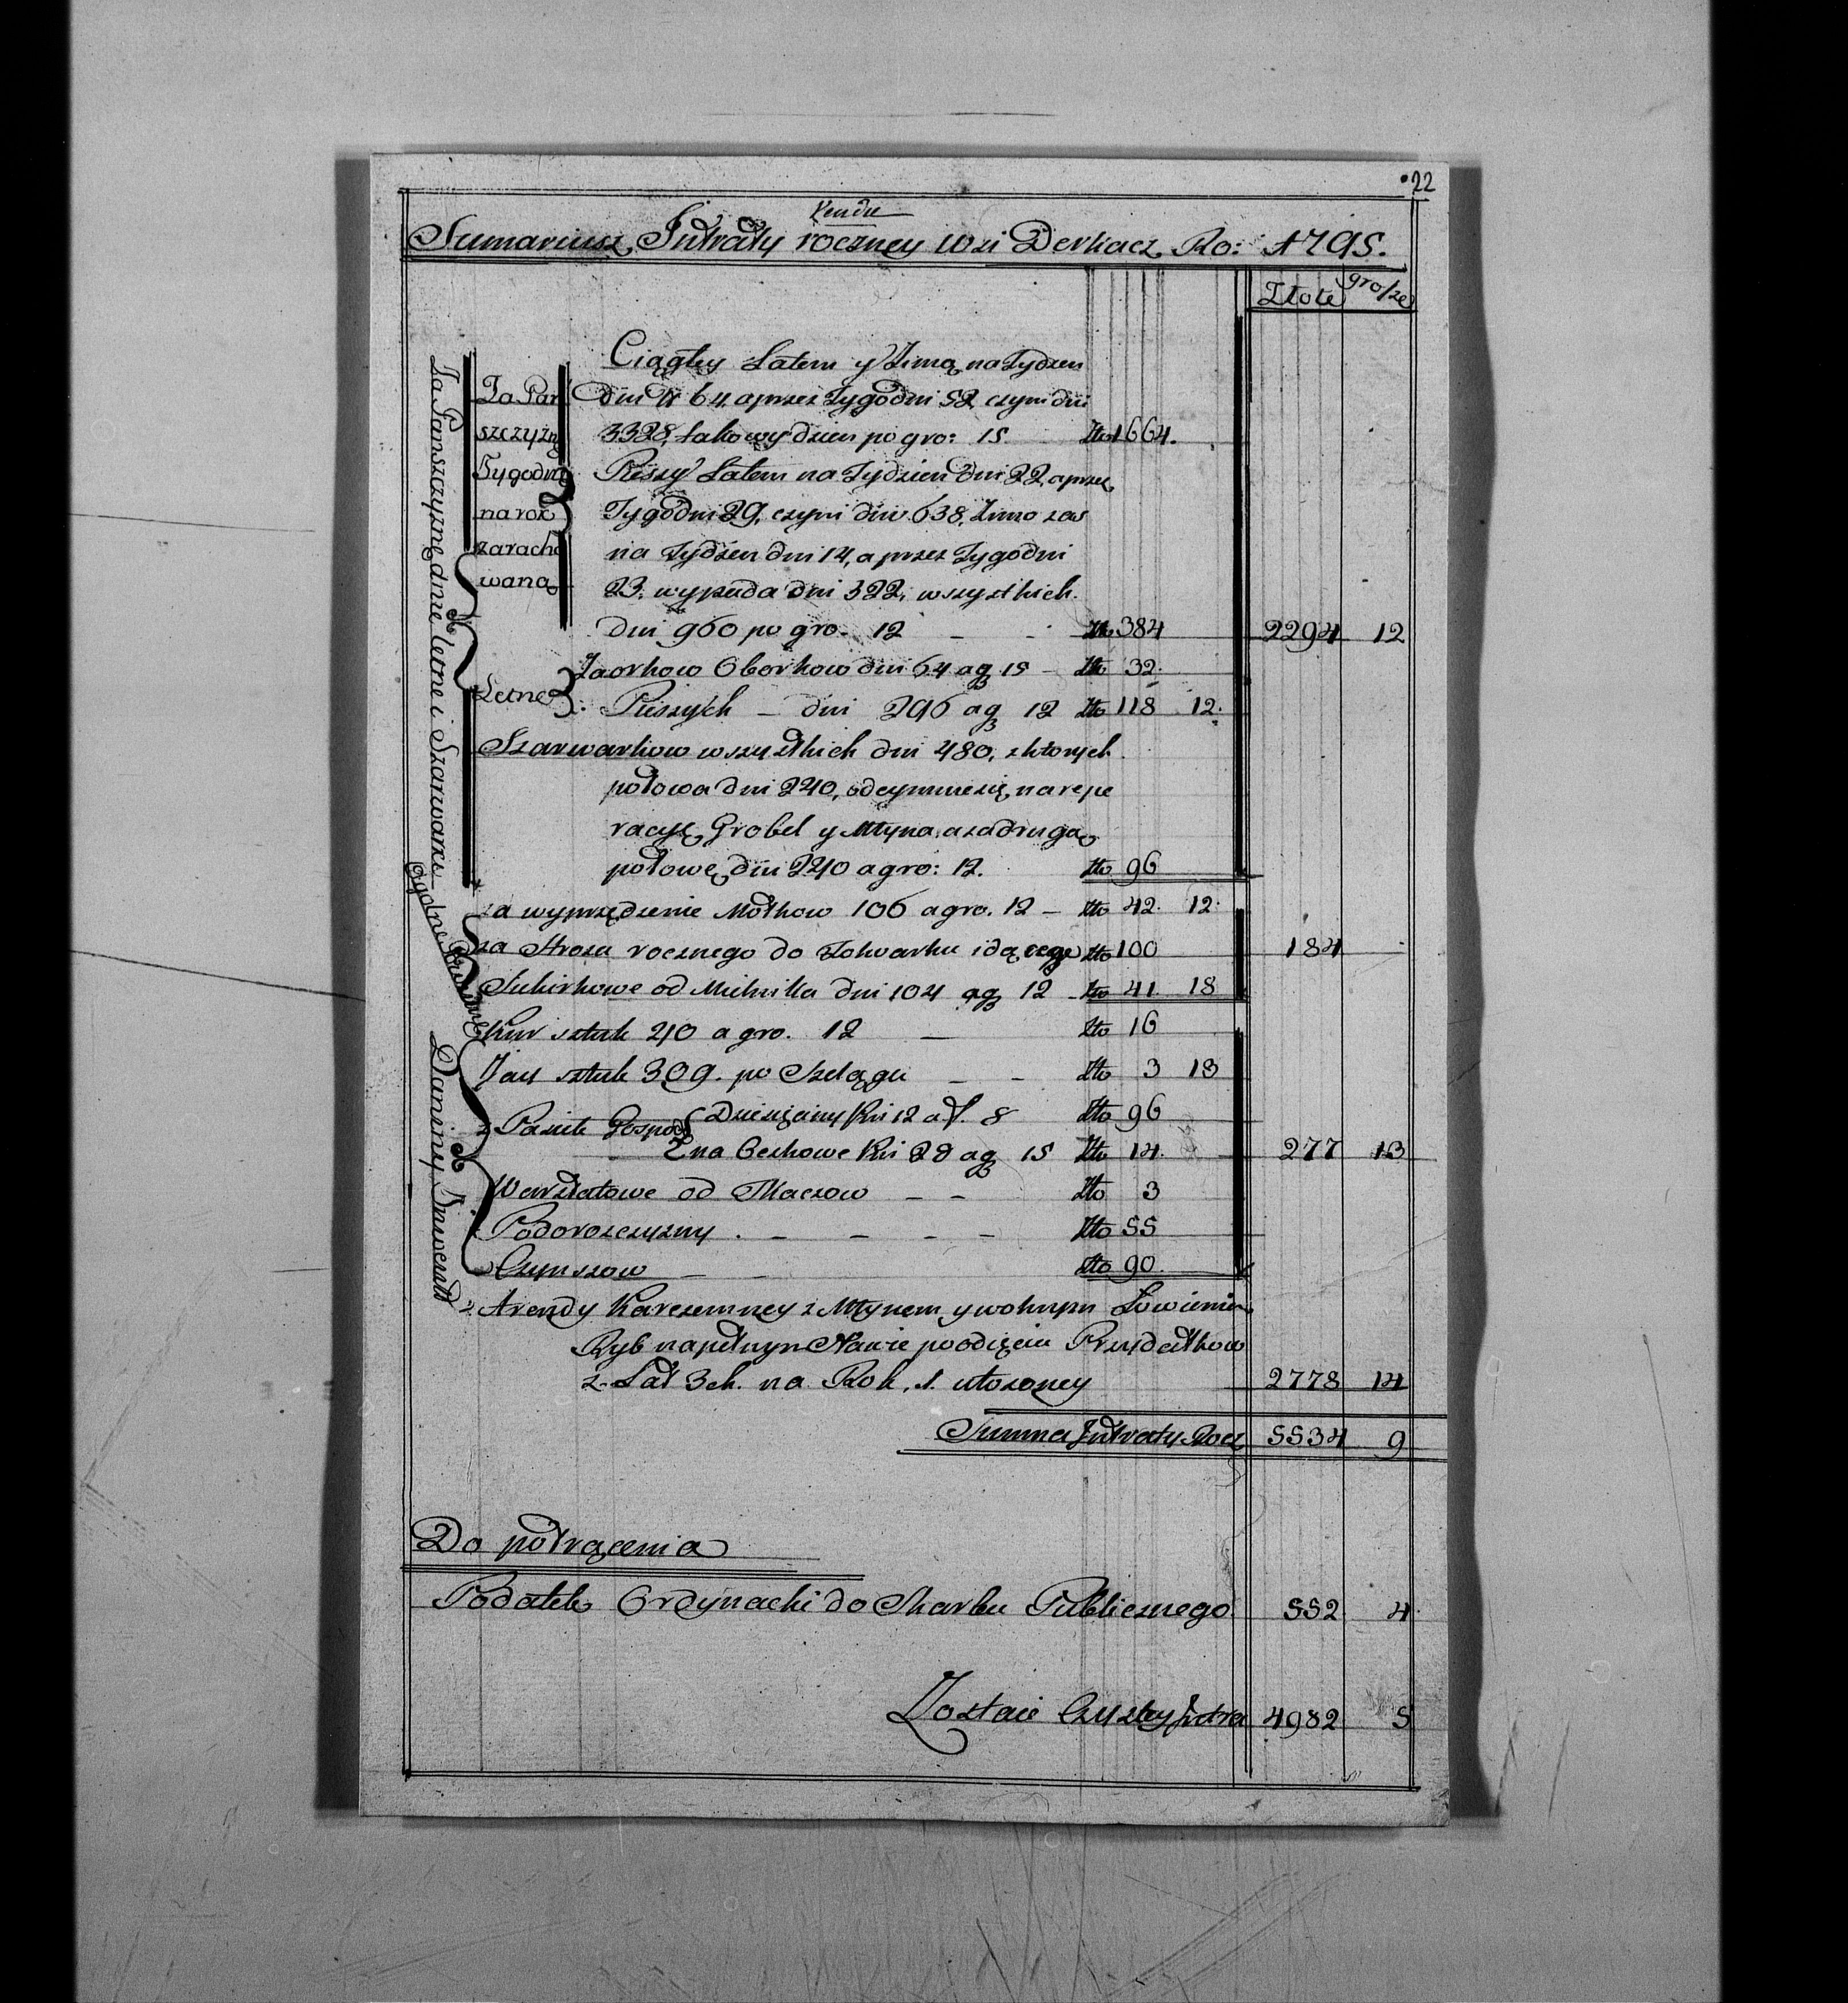 22
Sumariusz Intraty roczney Wsi Derkacz Ro: 1795.
Złote grosze
Za Pańszczyznę dnie letne i Szarwarki
Za Pań
szczyzną
Tygodni
na rok
zaracho
waną
Ciągłey Latem y Zimą na Tydzen
dni N 64 a przez Tygodni 52 czyni dni
3328, takowy dzien po gro: 15 Zło 1664.
Pieszy Latem na Tydzien dni 22, a przez
Tygodni 29, czyni dni 638, Zimo zas
na Tydzen dni 14, a przez Tygodni
23. wypada dni 322, wszystkich
dni 960 po gro. 12 – - Zło 384 2294 12
Letne
Zaorkow Oborkow dni 64 ag 15 – Zło 32.
Pieszych – dni 296 ag 12 Zło 118 12.
Szarwarkow wszystkich dni 480, z ktorych
połowa dni 240, odeymuie się na repe
racyę Grobel y Młyna, a za drugą
połowę dni 240 a gro: 12. Zło 96
za wyprzędzenie Motkow 106 a gro. 12 – Zło 42. 12.
za Stroza rocznego do Folwarku idącego Zło 100 184
od Mielnika dni 104 ag 12 - Zło 41. 18
Daniny
Kur sztuk 40 a gro. 12 — Zło 16
Jaij sztuk 309. po Szelągu – – Zło 3 13
z Pasiek Gospod Dziesięciny Pni 12 a f. 8 Zło 96
na Oczkowe Pni 28 ag 15 Zło 14. 277 13
Warsztatowe od Tkaczow – – Zło 3
Podorozczyzny . – – – – Zło 55
Czynszow — - Zło 90.
z Arendy Karczemney z Młynem y wolnym Łowieniem
Ryb na pełnym Stawie po odięciu Przydatkow
z Lat 3ch. na Rok .1. ułozoney 2778 14
Summa Intraty Rocz 5534 9
Do potrącenia
Podatek Ordynacki do Skarbu Publicznego 552 4
Zostaie Czystey Intra 4982 5